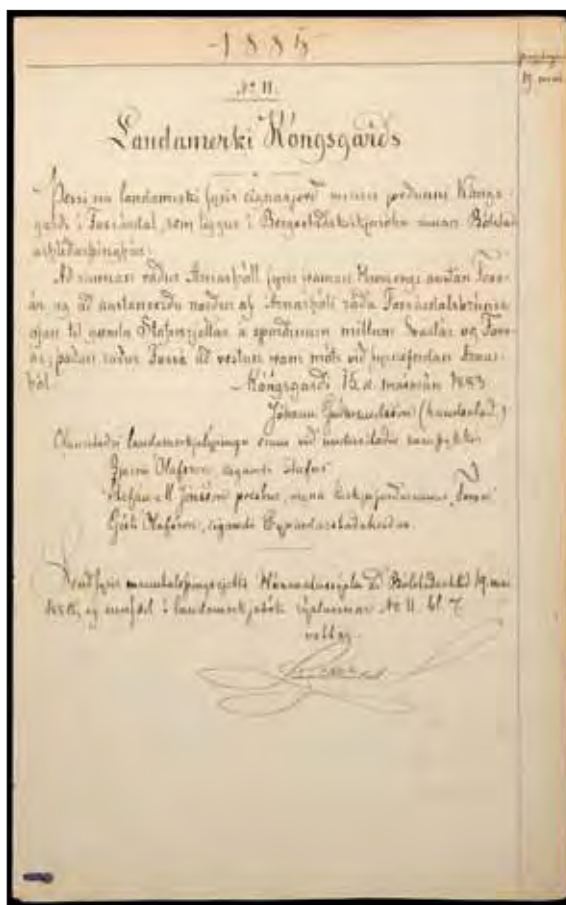 1885
þinglýsing
19. maí
No 11.
Landamerki Kóngsgards
Þessi eru landamerki fyrir eignarjörð minni Kóngs-
gardi í Fossárdal, sem liggur í Bergstaðakirkjusókn innan Bólstað
arhlíðarþinghár:
Að sunnan ræður Arnarháll fyrir framan austan Foss-
ár og að austanverðu norður af Arnarhóli ráða Fossárdalsbrúnir
ofan til Stafnsrjettar á sporðinum millum Svartár og Foss-
ár; þaðan ræður Fossá að vestan fram móts við fyrnefndan Arnar-
hól.
Kóngsgardi, 15. d. 1883
Jóhann Guðmundsson (handsalað.)
Ofanritaðri landamerkjalýsingu erum við undirritaðir samþykkir
Ólafsson, eigandi Stafns
Stefán M. Jónsson prestur, vegna kirkjujarðarinnar Fossa
Gísli Ólafsson, eigandi Eyvindarstaðaheiðar.
Lesið fyrir manntalsþingsrjetti Húnavatnssýslu að Bólstaðarhlíð 19. maí
1885, og innfært í landamerkjabók sýslunnar No 11. bl. 7.
vottar